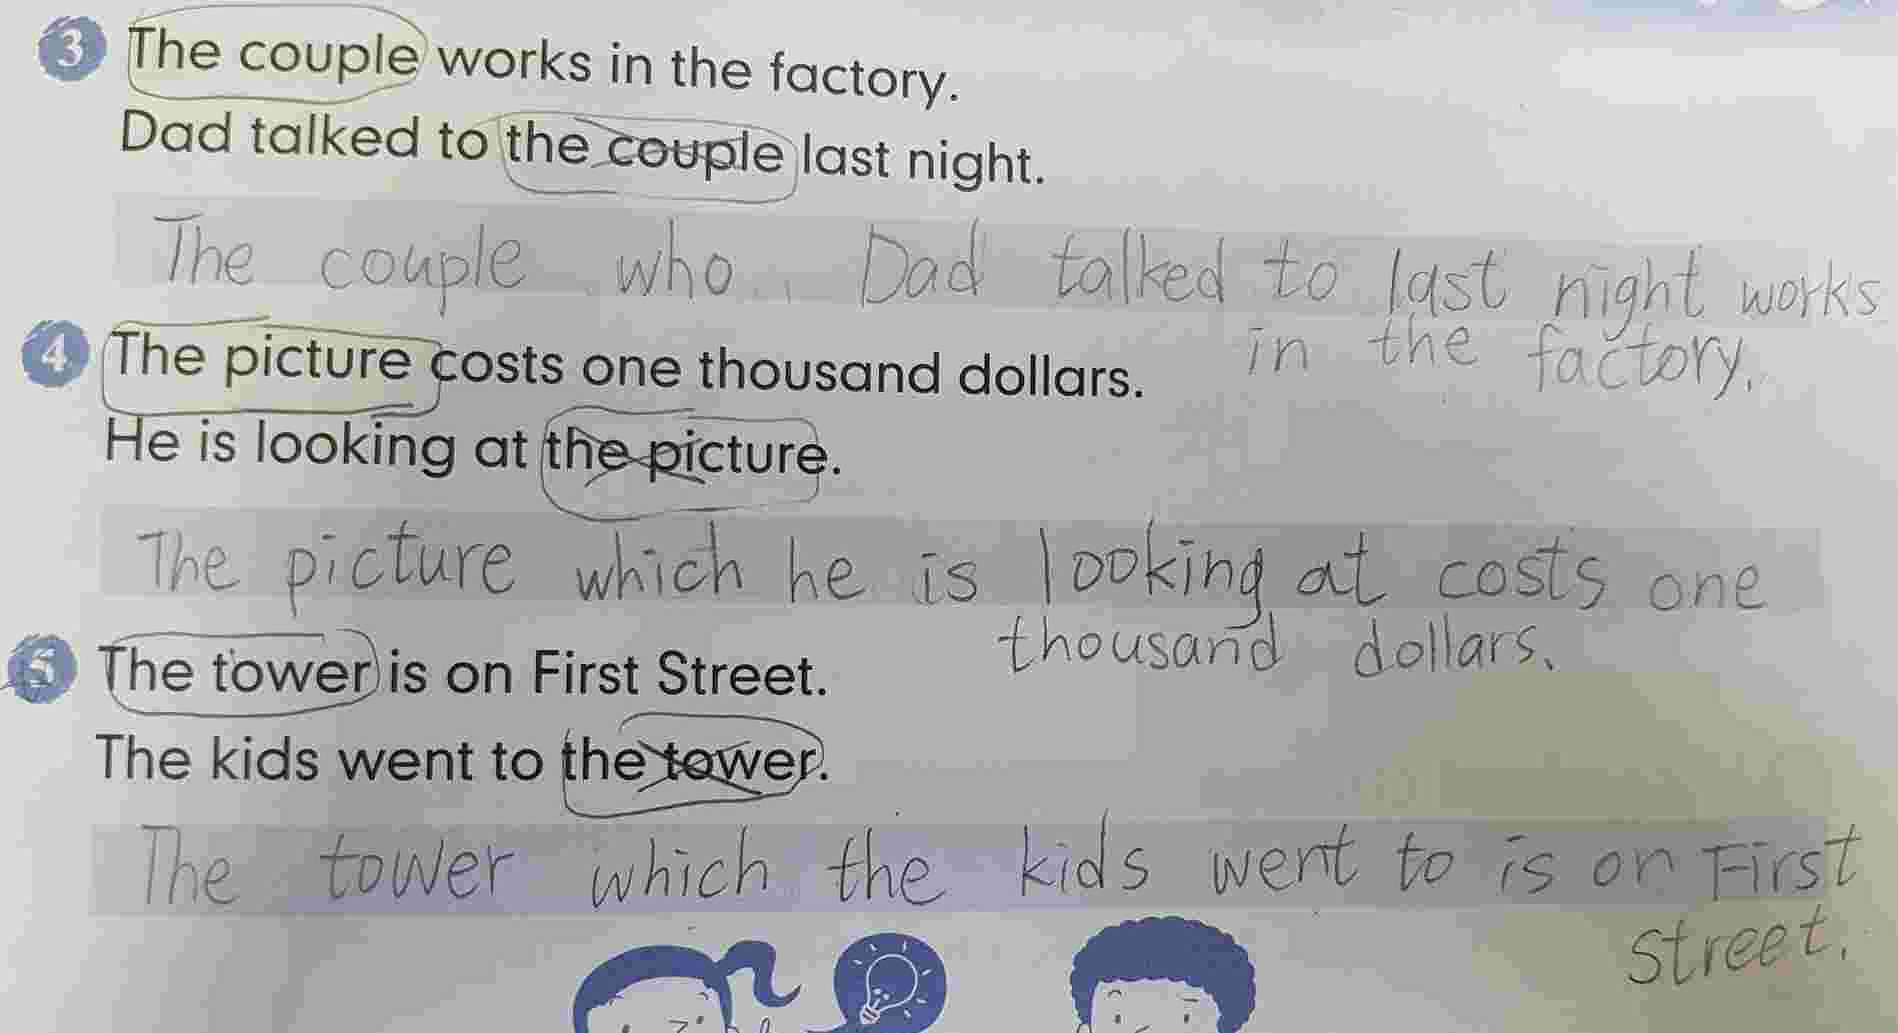 3 The couple works in the factory.
Dad talked to the couple last night.
The couple who Dad talked to last night works
in the factory.
4 The picture costs one thousand dollars.
He is looking at the picture.
The picture which he is looking at costs one
thousand dollars.
5 The tower is on First Street.
The kids went to the tower.
The tower which the kids went to is on First
Street.